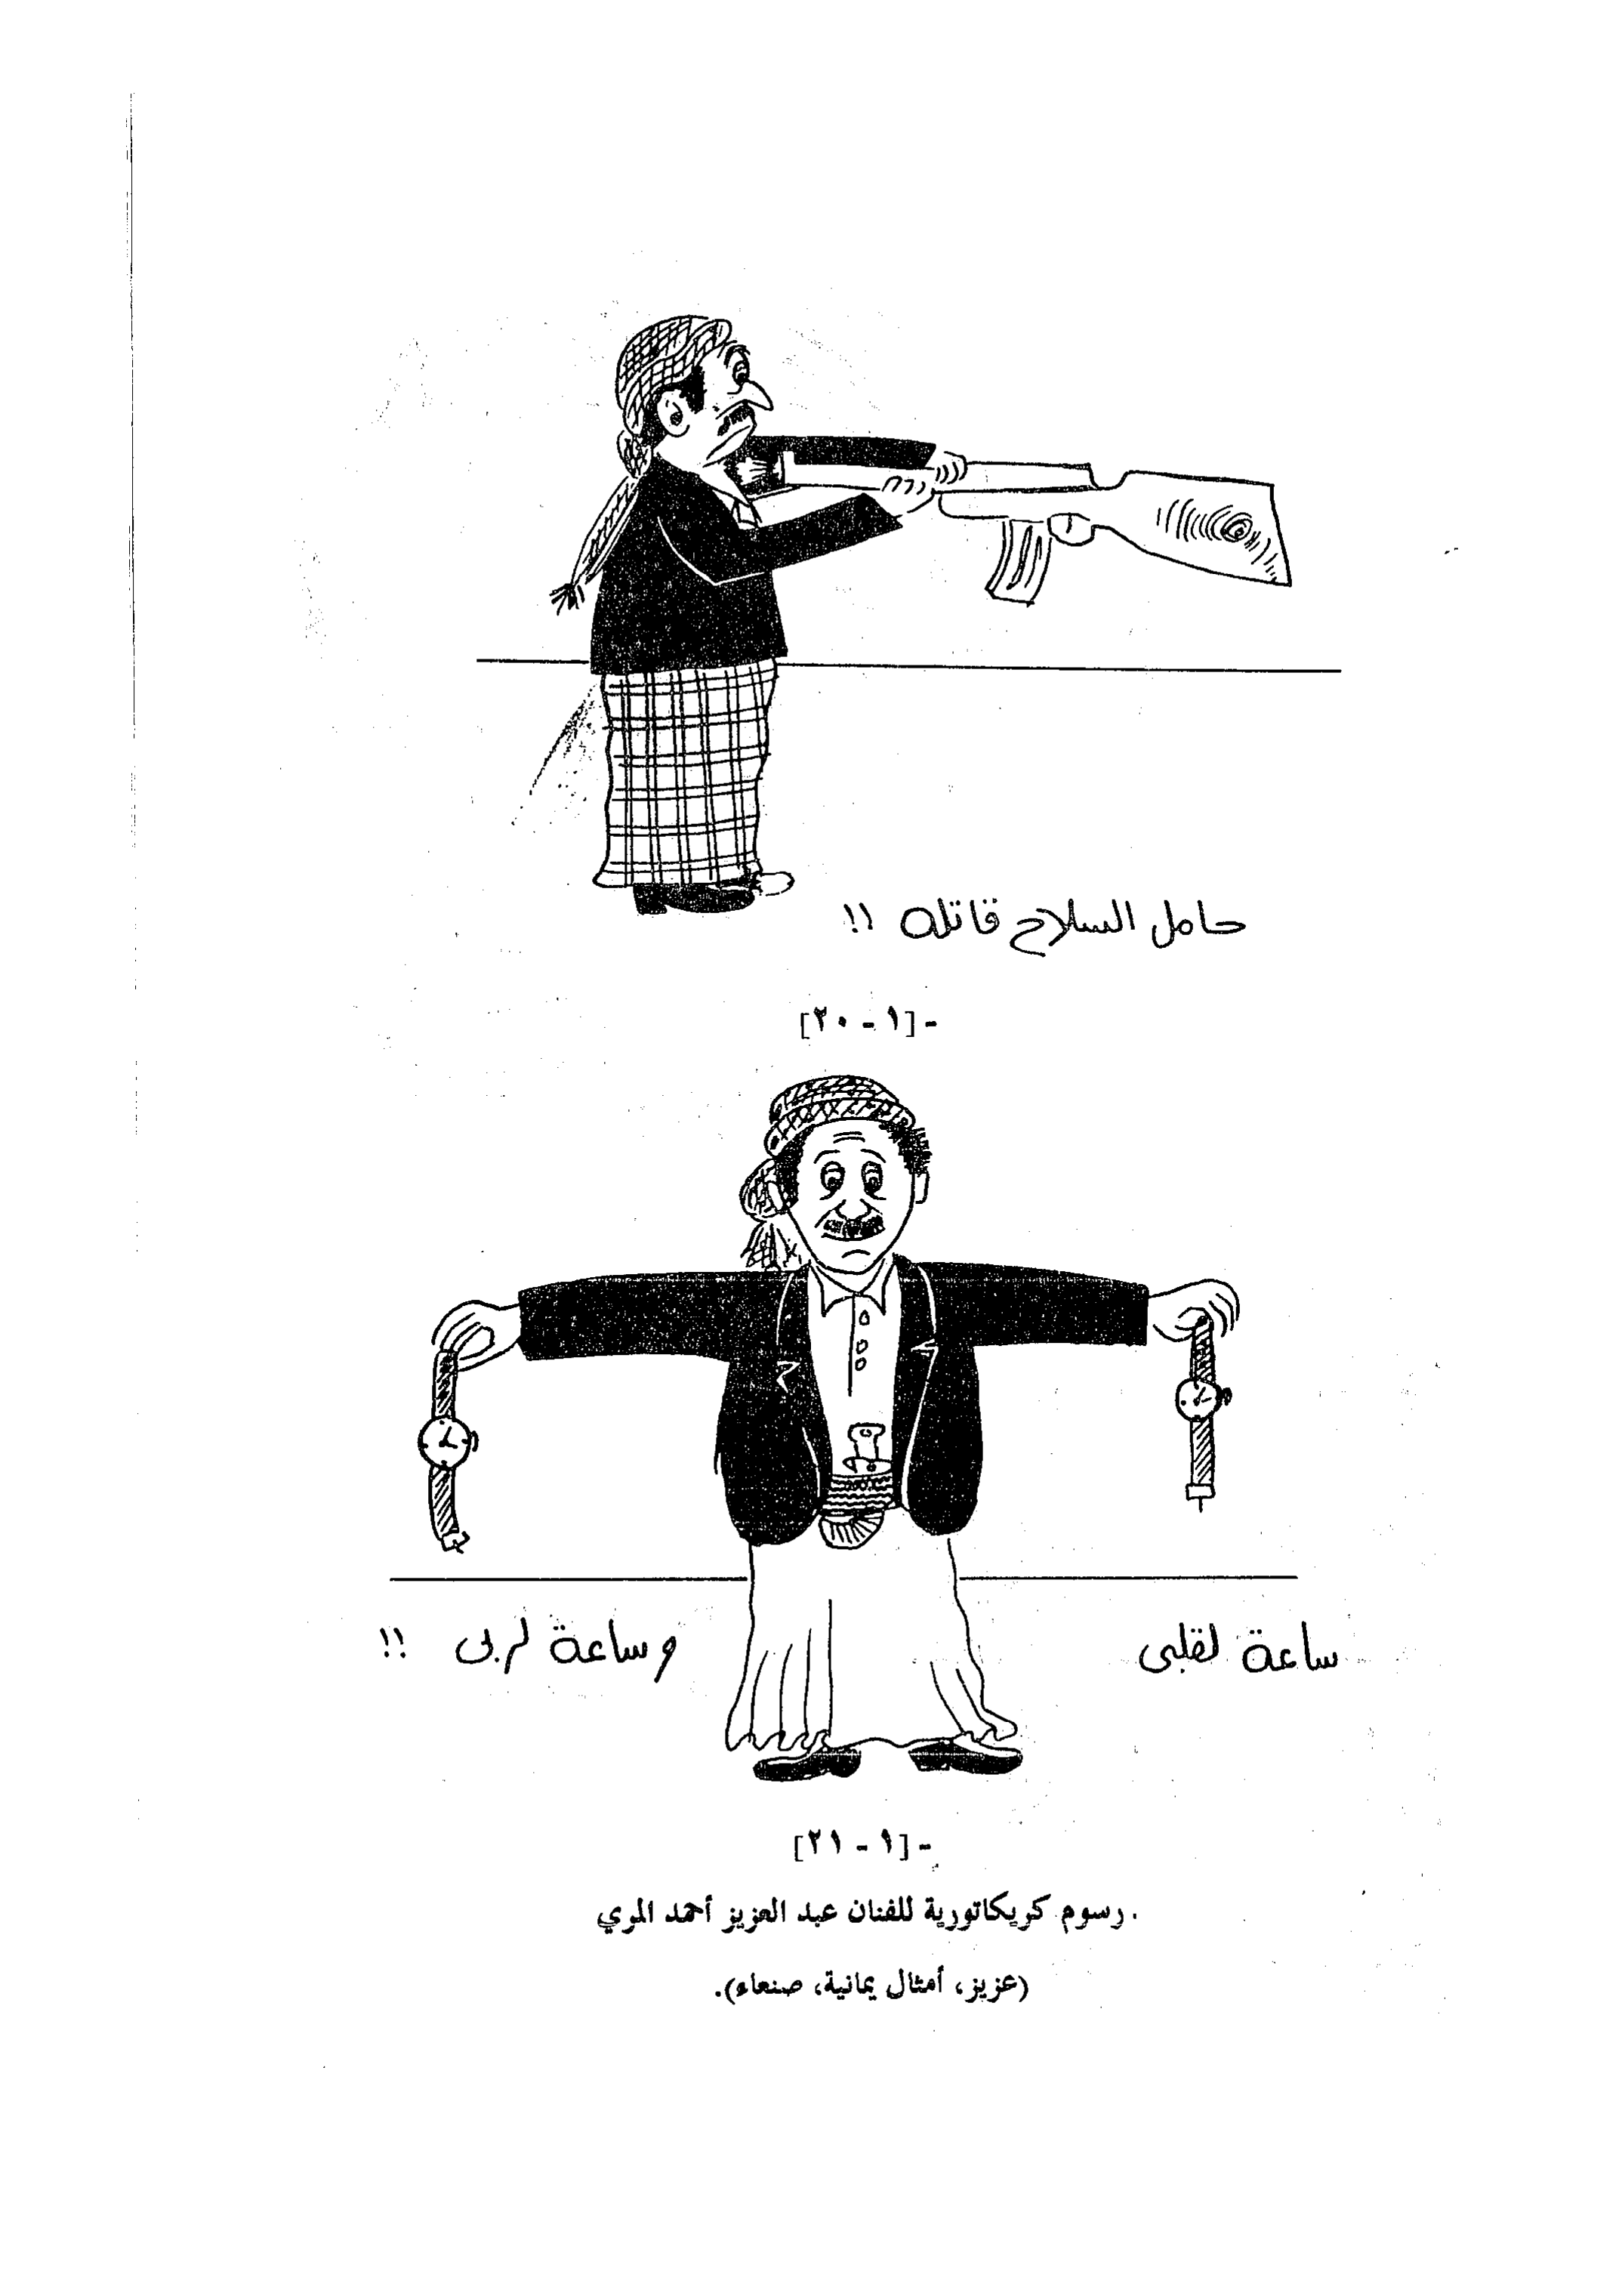 حامل السلاح قاتله !!
- [١ - ٢٠]
ساعة لقلبى
وساعة لربى !!
- [١ - ٢١]
رسوم كريكاتورية للفنان عبد العزيز أحمد المري
(عزيز، أمثال يمانية، صنعاء).